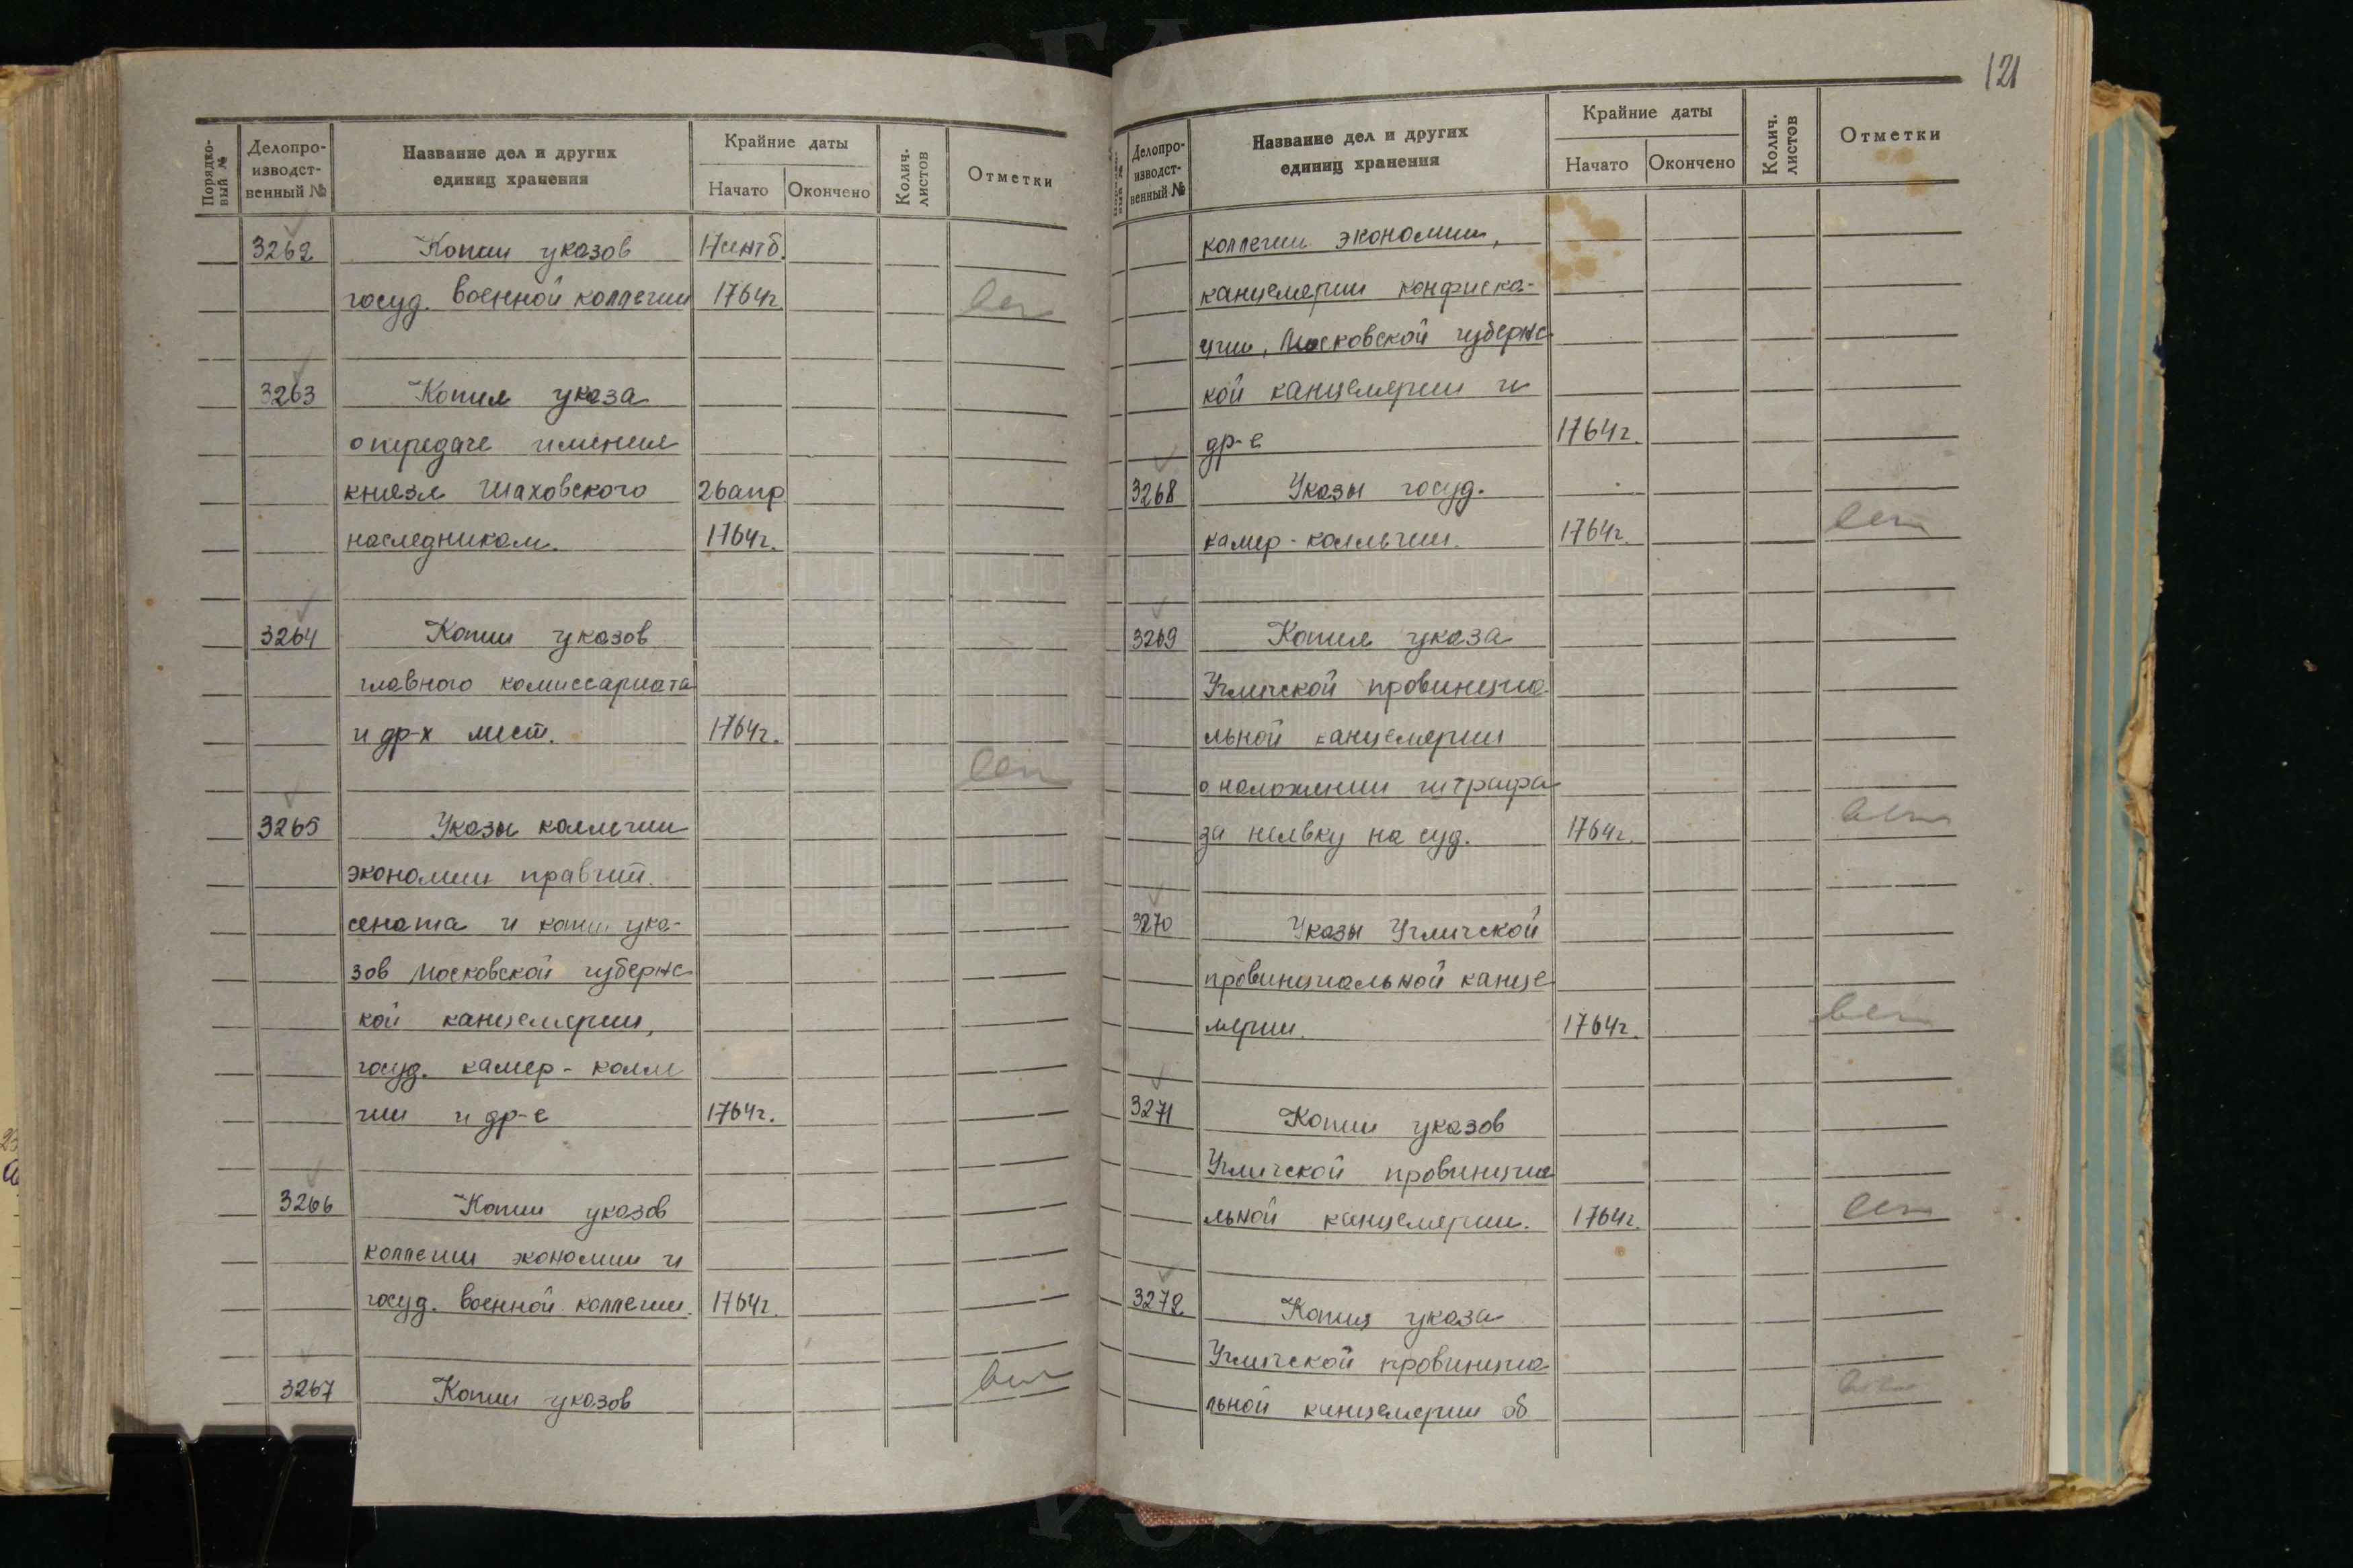 Порядко-
вый №
Делопро-
изводст-
венный №
Название дел и других
единиц хранения
Крайние даты
Начато
Окончено
Колич.
листов
Отметки
3262 Копии указов
госуд. военной коллегии 1764г.
3263 Копия указа
о передаче имения
князя Шаховского 26 апр
наследникам. 1764г.
3264 Копии указов
главного комиссариата
и др-х мест. 1764г.
3265 Указы коллегии
экономии правит.
сената и копии ука-
зов Московской губернс
кой канцелярии,
госуд. камер-колле
гии и др-е 1764г.
3266 Копии указов
коллегии экономии и
госуд. военной коллегии. 1764г.
3267 Копии указов
121
Делопро-
изводст-
венный №
Название дел и других
единиц хранения
Крайние даты
Начато
Окончено
Колич.
листов
Отметки
коллегии экономии,
канцелярии конфиска-
ции, Московской губернс
кой канцелярии и
др-е 1764г.
3268 Указы госуд.
камер-коллегии. 1764г.
3269 Копия указа
Угличской провинциа
льной канцелярии
о наложении штрафа
за неявку на суд. 1764г.
3270 Указы Угличской
провинциальной канце
лярии. 1764г.
3271 Копии указов
Угличской провинциа
льной канцелярии. 1764г.
3272 Копия указа
Угличской провинциа
льной канцелярии об